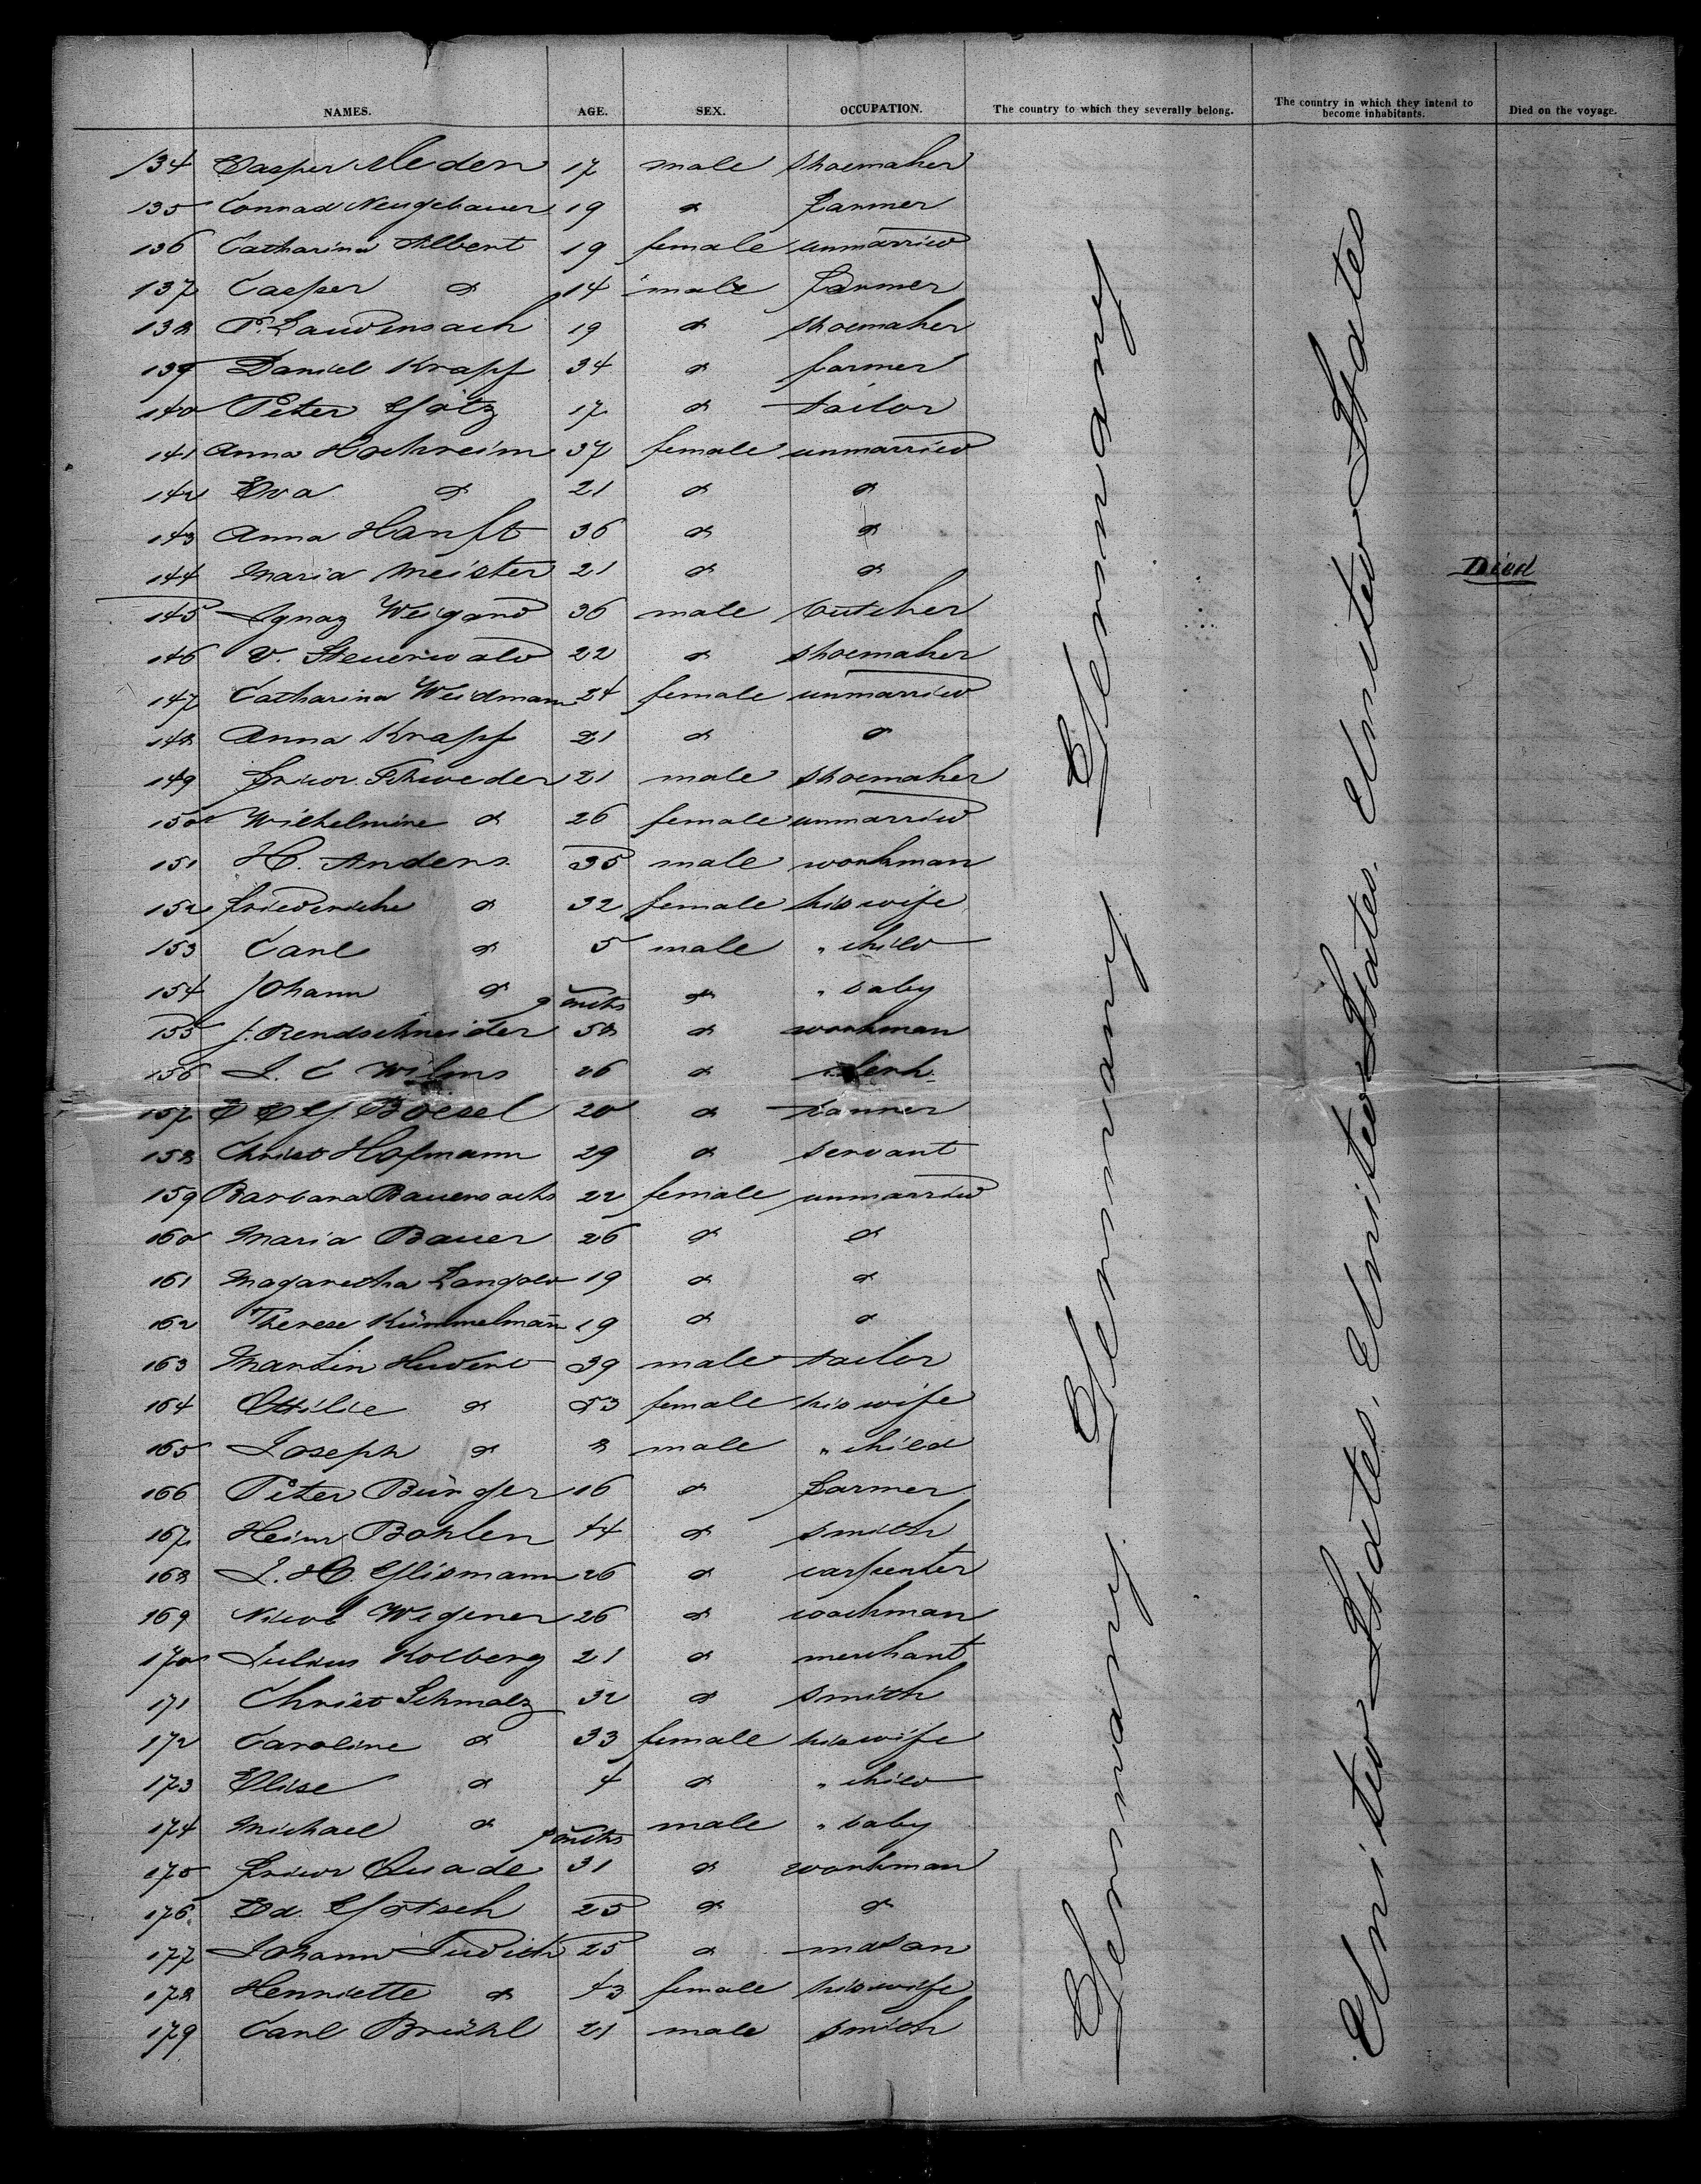 NAMES. AGE. SEX. OCCUPATION. The country to which they severally belong. The country in which they intend to become inhabitants. Died on the voyage.
134 Casper Meden 17 male shoemaker
135 Conrad Neugebauer 19 do farmer
136 Catharina Albert 19 female unmarried
137 Casper do 14 male farmer
138 P. Laudensach 19 do shoemaker
139 Daniel Krapf 34 do farmer
140 Peter Götz 17 do tailor
141 Anna Hochreim 37 female unmarried
142 Eva do 21 do do
143 Anna Hanft 36 do do
144 Maria Meister 21 do do Died
145 Ignaz Weigand 36 male butcher
146 V. Steuerwald 22 do shoemaker
147 Catharina Weidmann 24 female unmarried
148 Anna Krapf 21 do do
149 Friedr. Schweder 21 male shoemaker
150 Wilhelmine do 26 female unmarried
151 H. Anders 35 male workman
152 Friederike do 32 female his wife
153 Carl do 5 male " child
154 Johann do 9 mths do " baby
155 J. Rendschneider 58 do workman
156 J. C Wilms 26 do clerk
157 Boesel 20 do tanner
158 Christ Hofmann 29 do servant
159 Barbara Bauersachs 22 female unmarried
160 Maria Bauer 26 do do
161 Magaretha Langold 19 do do
162 Therese Kümmelmann 19 do do
163 Martin 39 male tailor
164 Ottilie do 53 female his wife
165 Joseph do 8 male " child
166 Peter Bürger 16 do farmer
167 Heinr Bohlen 44 do smith
168 J. H. Glismann 26 do carpenter
169 Nicol Wegener 26 do coachman
170 Julius Kolberg 21 do merchant
171 Christ Schmalz 32 do smith
172 Caroline do 33 female his wife
173 Elise do 4 do " child
174 Michael do 9 mths male " baby
175 Friedr Quade 31 do workman
176 Ed. Götsch 25 do do
177 Johann Judith 25 do mason
178 Henriette do 43 female his wife
179 Carl Brühl 21 male smith
Germany Germany Germany
United States, United States, United States